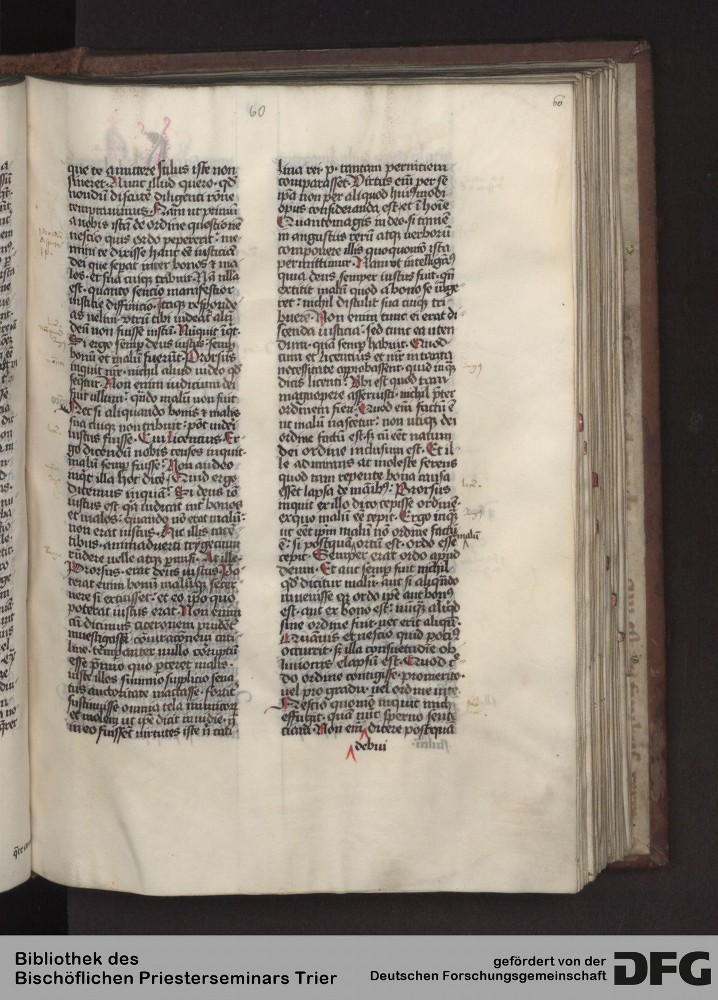 60
60
que te amittere stilus iste non
sineret. Nunc illud quero. qd
nondū discute diligenti rōne
temptauimus. Nam ut primū
a nobis ista de ordine questio
nescio quis ordo pepererit: me
mini te dixisse hanc ēē iusticiā
dei que sepat inter bonos & ma
los. et sua cuiq; tribuit. Nā nlla
est. quanto sencio manifestior
iusticie diffinicio. Itaq; respōde
as velim. vtrū tibi uideat̄ aliqn̄
deū non fuisse iustū. Nūquā iqt.
Si ergo semp deus iustus. semp
bonū et malū fuerūt. Prorsus
inquit mr̄. nichil aliud uideo qd
seqtur. Non enim iudicium dei
fuit ullum. qn̄do malū non fuit
Nec si aliquando bonis & malis
sua cuiq; non tribuit. pōt uideri
iustus fuisse. Cui licencius. Er
go dicendū nobis censes inquit
malū semp fuisse. Non audeo
inqt illa hoc dice. Quid ergo
dicemus inquā. Si deus iō
iustus est. qa iudicat int̄ bonos
et malos. quando nō erat malū.
non erat iustus. Hic illis tacē
tibus. animaduerti trygecium
rūdere uelle atq; pmisi. At ille.
Prorsus. erat deus iustus. Po
terat enim bonū malūq; secer
nere si extitisset. et eo ipo quo
poterat iustus erat. Non enim
cū dicimus ciceronem prudēt̄
inuestigasse coniuracōnem cati
line. tempanter nullo corruptū
esse premio quo pceret malis.
iuste illos summo suplicio sena
tus auctoritate mactasse. fortit̄
sustinuisse omnia tela inimicor̄
et molem ut ipe dixit inuidie. n̄
in eo fuisset uirtutes iste n̄ cati
lina rei. p. tantam perniciem
comparasset. Virtus eim per se
ipā non per aliquod huiꝰmodi
opus consideranda est. et ī hoīe
Quantomagis in deo. si tamē
in angustiis rerū atq; uerborū
componere illis quoquomō ista
permittimur. Nam ut intelligāꝰ
quia deus semper iustus fuit. qn̄
extitit malū quod a bono seiuge
ret. nichil distulit sua cuiq; tri
buere. Non enim tunc ei erat di
scenda iusticia. sed tunc ea uten
dum. qua semp habuit. Quod
cum et licentius et mr̄ in tanta
necessitate aprobassent. quid inq̄
dicis licenti. Vbi est quod tam
magnopere asseruisti. nichil pt̄er
ordinem fieri. Quod eim factū ē
ut malū nasceret̄. non utiq; dei
ordine factū est. s; cū eēt natum
dei ordine inclusum est. Et il
le admirans ac moleste ferens
quod tam repente bona causa
esset lapsa de manibꝰ. Prorsus
inquit ex illo dico cepisse ordinē.
ex quo malū eē cepit. Ergo inq̄
ut eēt ipm malū nō ordine factū
ē. si postquā ortū est. ordo esse malū
cepit. Semper erat ordo apud
deum. Et aut semp fuit nichil
qd dicitur malū. aut si aliqn̄do
inuenitur ee q; ordo ipe aut bonꝰ
est. aut ex bono est. nūq; aliqd
sine ordine fuit. nec erit aliqn̄.
Quāuis et nescio quid potiꝰ
occurrit. s; illa consuetudine ob
liuionis elapsū est. Quod c̄
do ordine contigisse. pro merito.
uel pro gradu. uel ordine uite.
Nescio quomō inquit mich
effugit. qua nūc sperno sente
ciam. Non eim dicere postqua
debui
Bibliothek des
Bischöflichen Priesterseminars Trier
gefördert von der
Deutschen Forschungsgemeinschaft
DFG